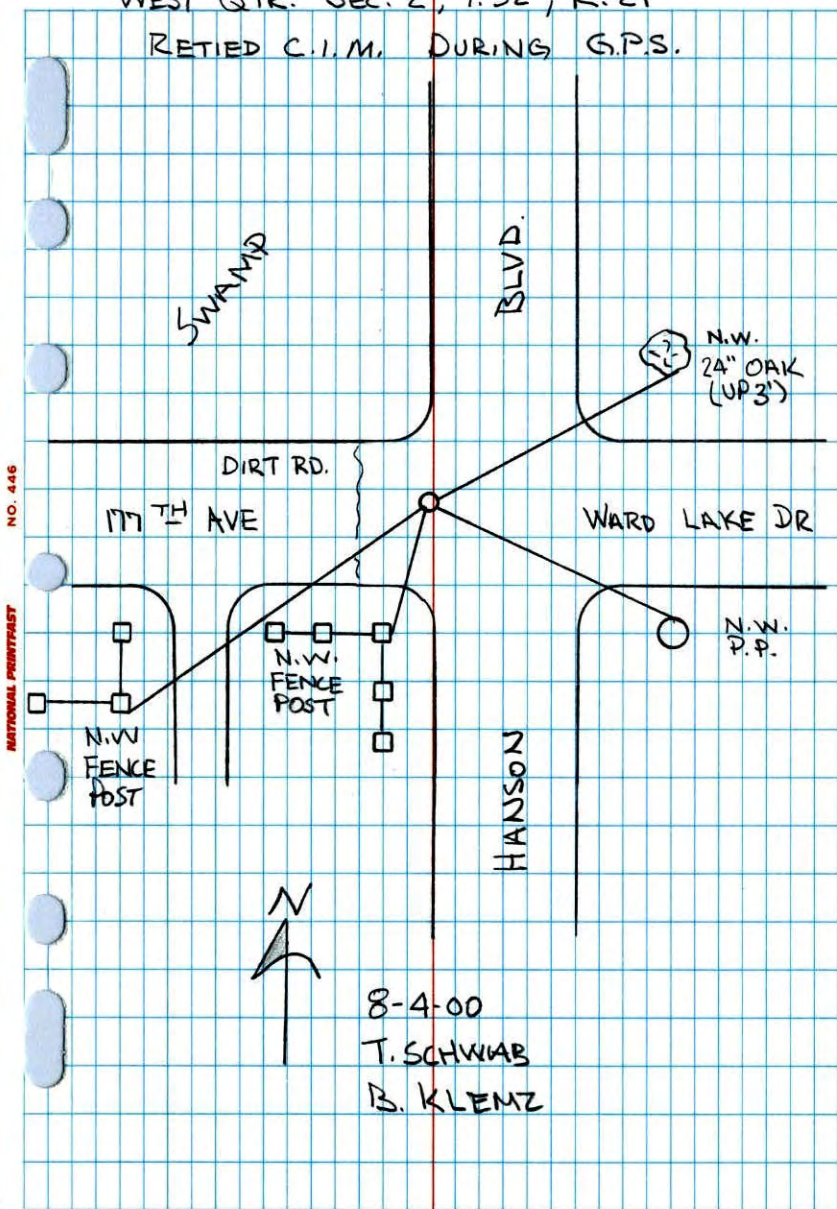 RETIED C.I.M. DURING G.P.S.
SWAMP
BLVD.
N.W.
24" OAK
(UP 3')
DIRT RD.
177TH AVE
WARD LAKE DR
N.W.
FENCE
POST
N.W.
P.P.
N.W
FENCE
POST
HANSON
N
8-4-00
T. SCHWAB
B. KLEMZ
NO. 446
NATIONAL PRINTFAST